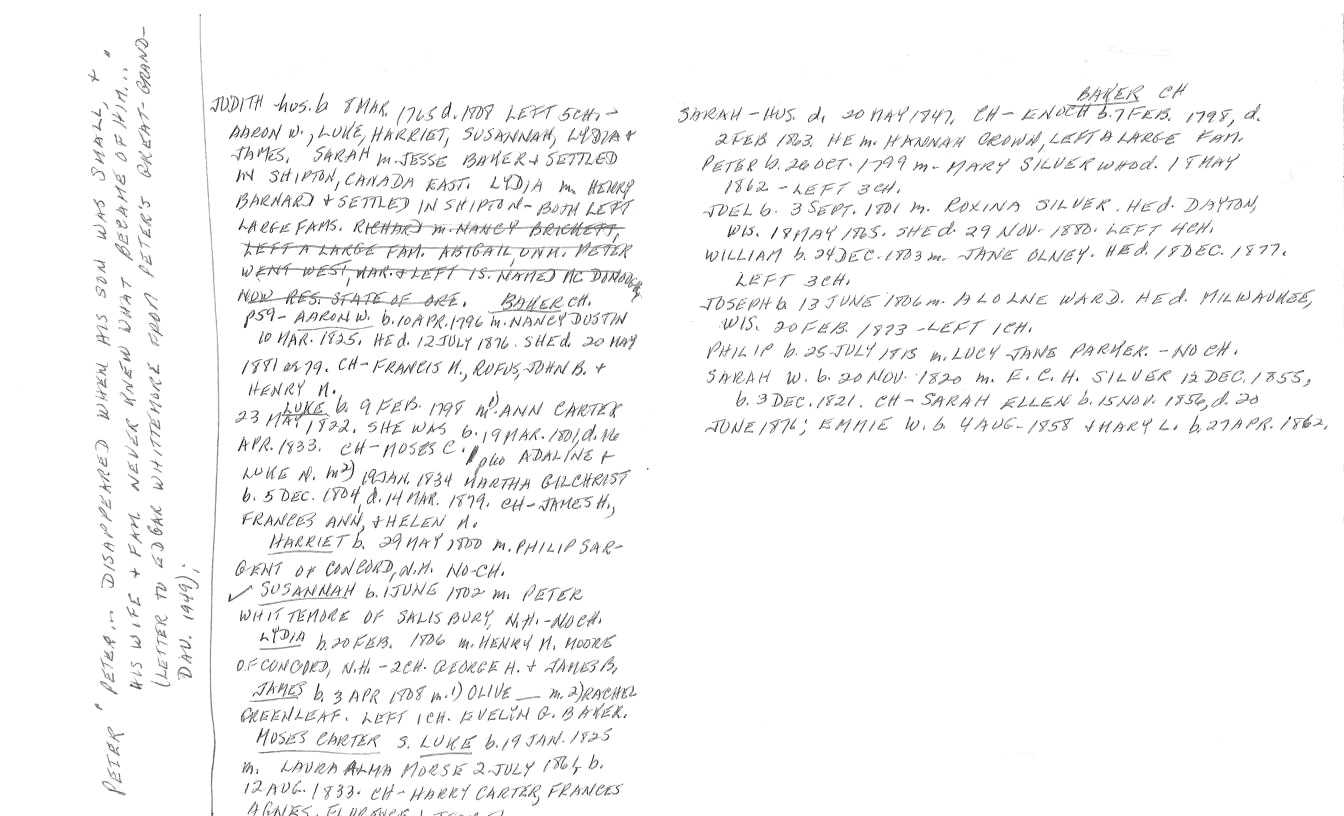 PETER "PETER... DISAPPEARED WHEN HIS SON WAS SMALL, +
HIS WIFE + FAM. NEVER KNEW WHAT BECAME OF HIM..."
(LETTER TO EDGAR WHITTEMORE FROM PETER'S GREAT-GRAND-
DAU. 1949);
JUDITH hus. b 8 MAR. 1765 d. 1808 LEFT 5CH, -
AARON W., LUKE, HARRIET, SUSANNAH, LYDIA +
JAMES. SARAH m. JESSE BAKER + SETTLED
IN SHIPTON, CANADA EAST. LYDIA m. HENRY
BARNARD + SETTLED IN SHIPTON - BOTH LEFT
LARGE FAMS. RICHARD m. NANCY BRICKETT,
LEFT A LARGE FAM. ABIGAIL, UNM. PETER
WENT WEST, MAR. + LEFT IS. NAMED MC DONOUGH
NOW RES. STATE OF ORE. BAKER CH.
p59 - AARON W. b. 10 APR. 1796 m. NANCY DUSTIN
10 MAR. 1825. HE d. 12 JULY 1876. SHE d. 20 MAY
1881 or 79. CH - FRANCIS M., RUFUS, JOHN B. +
HENRY M.
LUKE b. 9 FEB. 1798 m. 1) ANN CARTER
23 MAY 1822. SHE WAS b. 19 MAR. 1801, d. 16
APR. 1833. CH - MOSES C. plus ADALINE +
LUKE N. m 2) 19 JAN. 1834 MARTHA GILCHRIST
b. 5 DEC. 1804, d. 14 MAR. 1879. CH - JAMES H.,
FRANCES ANN, + HELEN M.
HARRIET b. 29 MAY 1800 m. PHILIP SAR-
GENT OF CONCORD, N.H. NO CH.
✓ SUSANNAH b. 1 JUNE 1802 m. PETER
WHITTEMORE OF SALISBURY, N.H. - NO CH.
LYDIA b. 20 FEB. 1806 m. HENRY M. MOORE
OF CONCORD, N.H. - 2CH. GEORGE H. + JAMES B.
JAMES b. 3 APR 1808 m. 1) OLIVE __ m. 2) RACHEL
GREENLEAF. LEFT 1 CH. EVELIN G. BAKER.
MOSES CARTER S. LUKE b. 19 JAN. 1825
m. LAURA ALMA MORSE 2 JULY 1861, b.
12 AUG. 1833. CH - HARRY CARTER, FRANCES
AGNES, FLORENCE
BAKER CH
SARAH - HUS. d. 20 MAY 1847. CH - ENOCH b. 7 FEB. 1798, d.
2 FEB 1863. HE m. HANNAH CROWN, LEFT A LARGE FAM.
PETER b. 26 OCT. 1799 m. MARY SILVER who d. 18 MAY
1862 - LEFT 3 CH.
JOEL b. 3 SEPT. 1801 m. ROXINA SILVER. HE d. DAYTON,
WIS. 18 MAY 1865. SHE d. 29 NOV. 1880. LEFT 4CH.
WILLIAM b. 24 DEC. 1803 m. JANE OLNEY. HE d. 18 DEC. 1877.
LEFT 3 CH.
JOSEPH b. 13 JUNE 1806 m. WARD. HE d. MILWAUKEE,
WIS. 20 FEB. 1873 - LEFT 1 CH.
PHILIP b. 25 JULY 1813 m. LUCY JANE PARKER. - NO CH.
SARAH W. b. 20 NOV. 1820 m. E. C. H. SILVER 12 DEC. 1855,
b. 3 DEC. 1821. CH - SARAH ELLEN b. 15 NOV. 1856, d. 20
JUNE 1876; EMMIE W. b. 4 AUG. 1858 + MARY L. b. 27 APR. 1862.